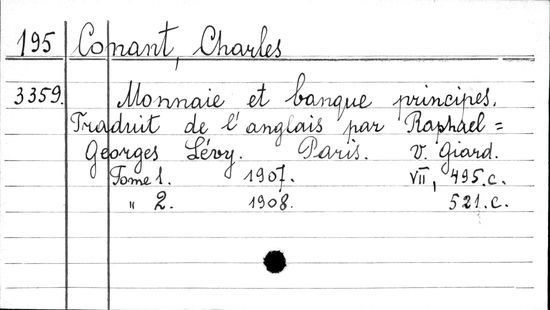 195 Conant, Charles
3359. Monnaie et banque principes.
Traduit de l'anglais par Raphael=
Georges Lévy. Paris. V. Giard.
Tome 1. 1907. VII, 495.c.
" 2. 1908. 521.c.